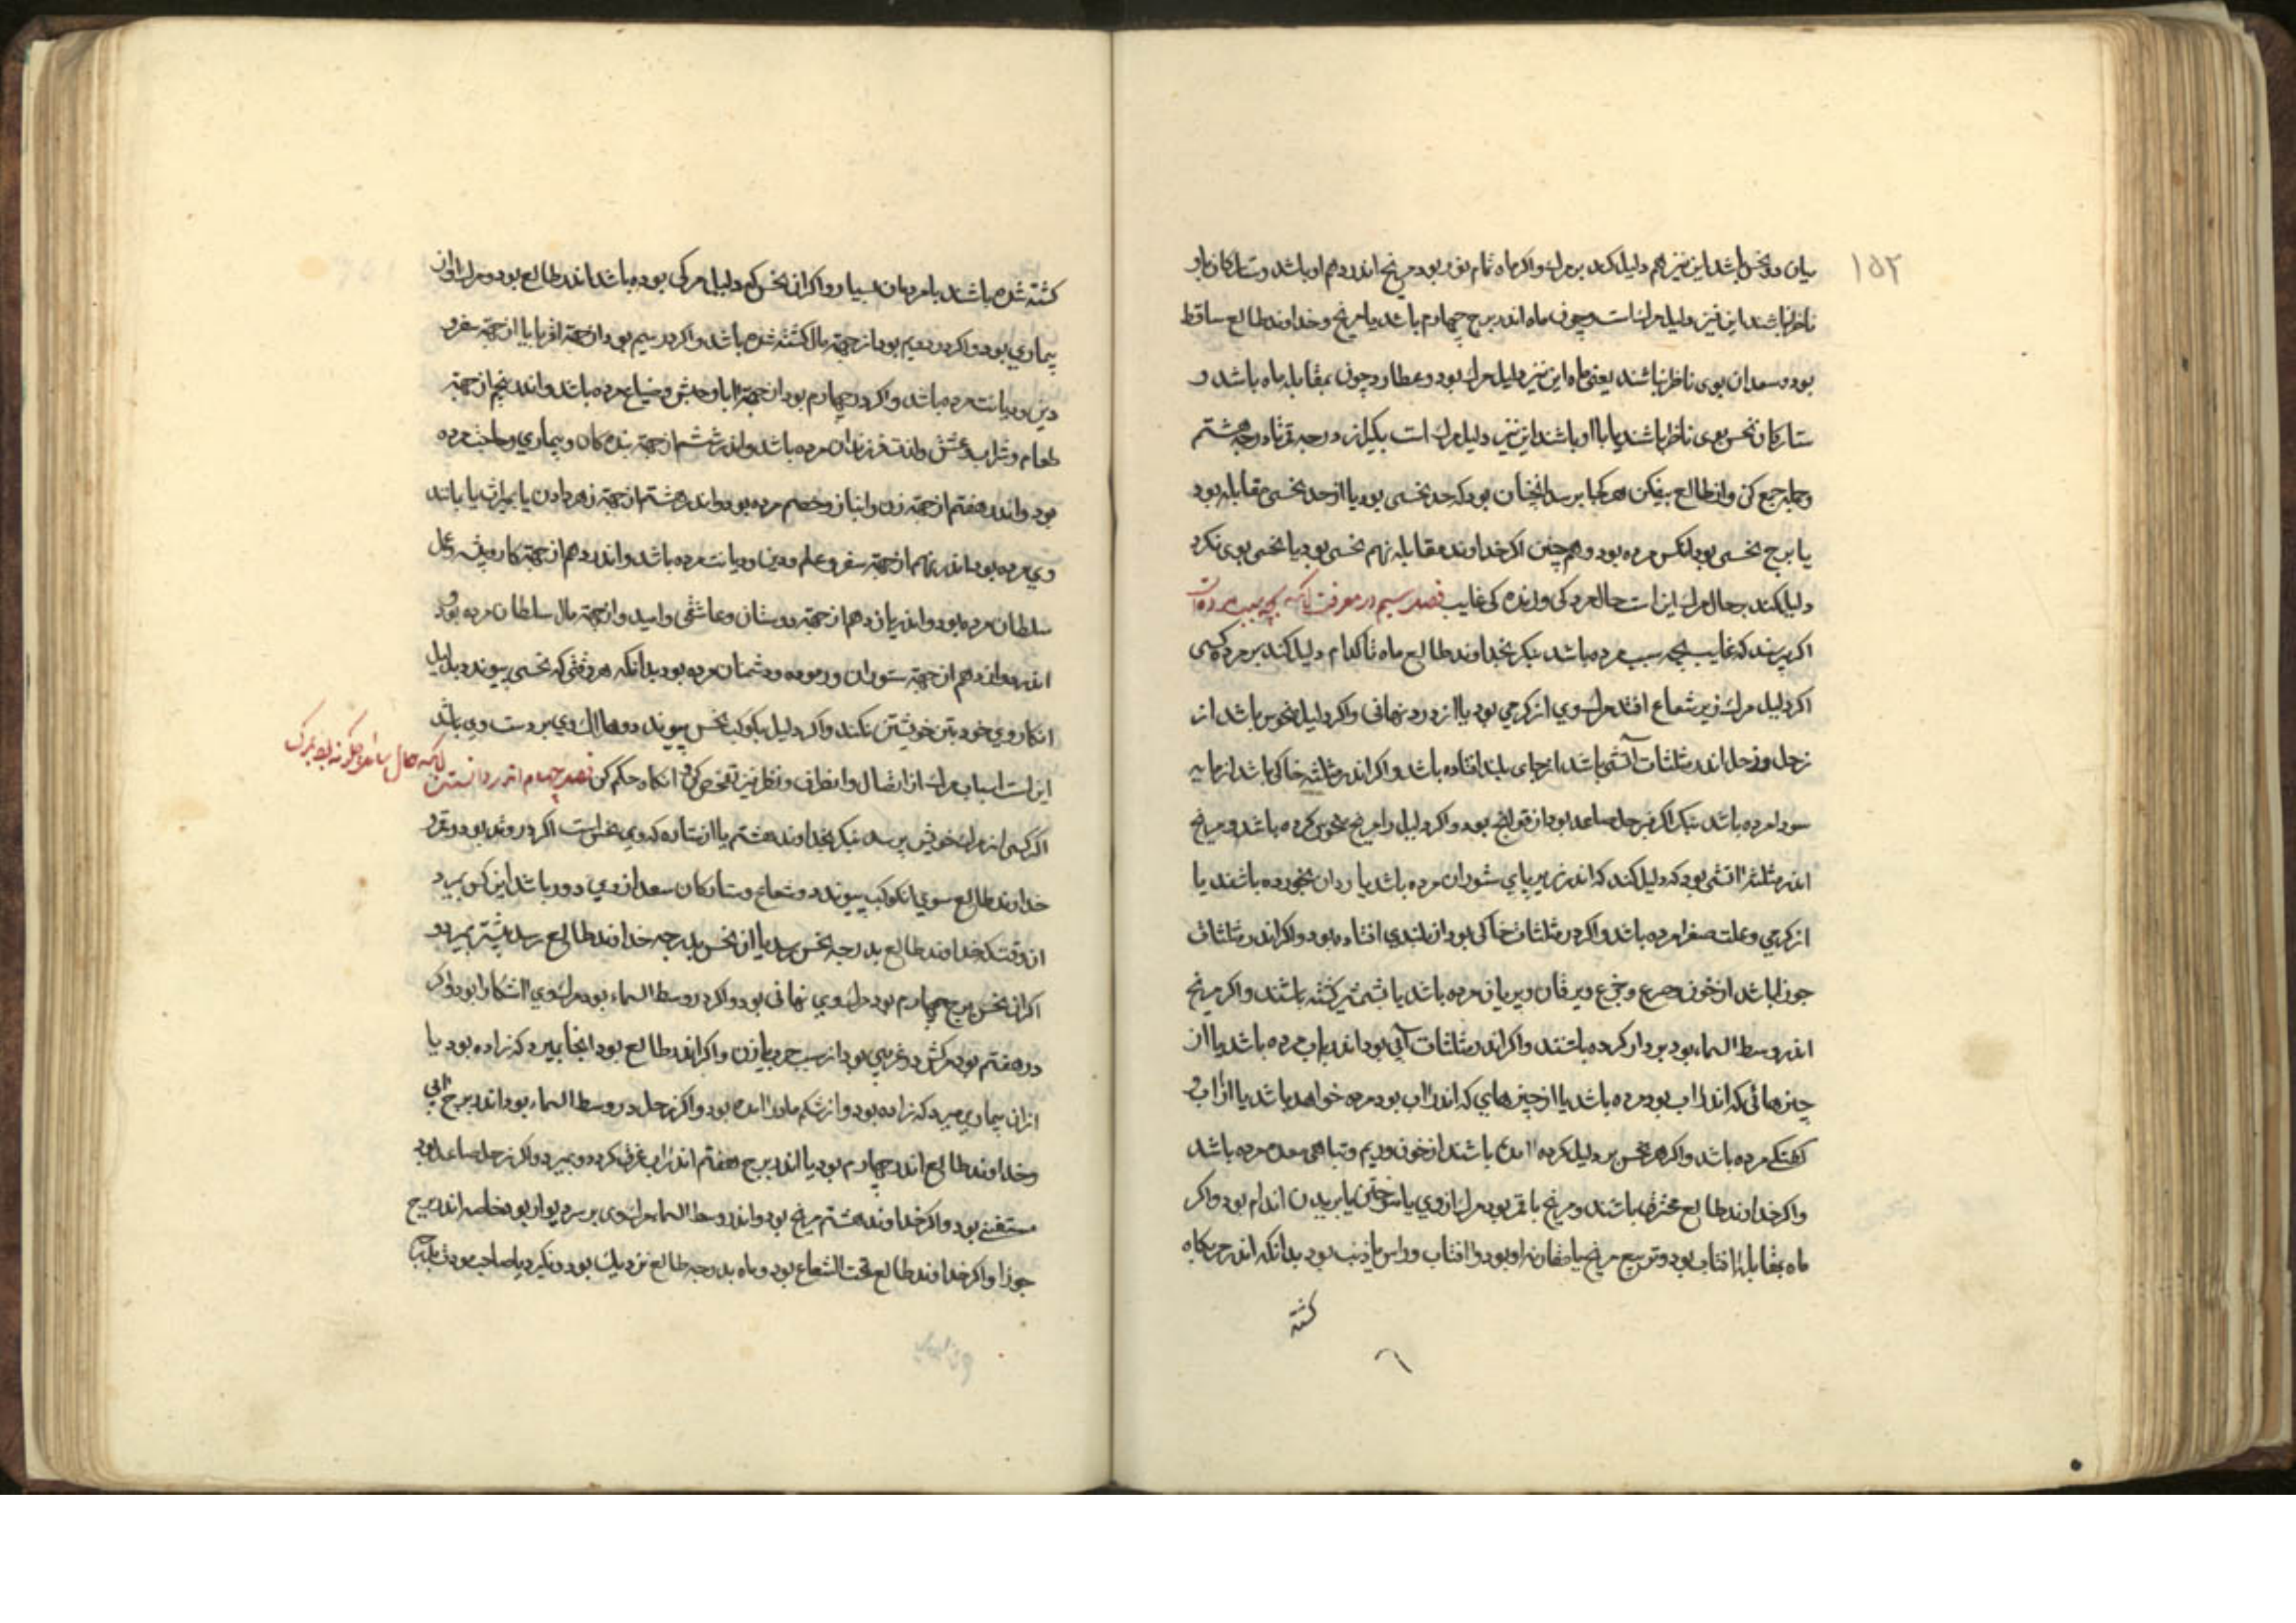 ۱۵۲
میان دو نحس باشد این نیز هم دلیل کند بر مرك واكر ماه تمام نور بود و مریخ اندر دهم او باشد وستارکان باو
ناظر نباشند این نیز دلیل مرك است وچون ماه اندر برج چهارم باشد با مریخ وخداوند طالع ساقط
بود وسعدان بوی ناظر نباشند یعنی ماه این نیز دلیل مرك بود وعطارد چون بمقابله ماه باشد و
ستارکان نحس بوی ناظر باشند یا با او باشند این نیز دلیل مرك است بکیر از درجه تا درجه هشتم
وجمله جمع کن واز طالع بیفکن هر کجا برسد انچنان بود که حد نحسی بود یا از حد نحسی مقابله بود
یا برج نحسی بود انکس مرده بود وهم چنین اکر خداوند مقابله نهم نحسی بود یا نحسی بوی نکرد
دلیل کند بر حال مرك این است حال مردکی وزنده کی غایب فصل سیم در معرفت انکه بچه سبب مرده است
اکر پرسند که غایب بچه سبب مرده باشد بنکر بخداوند طالع ماه تا کدام دلیل کند بر مرده کسی
اکر دلیل مرك زیر شعاع افتد مرك وی از کرمی بود یا از درد نهانی واکر دلیل منحوس باشد از
زحل وزحل اندر مثلثات آتشی باشد از جای بلند افتاده باشد واکر اندر مثلثه خاکی باشد از مایه
سودا مرده باشد بنکر اکر زحل صاعد بود از قولنج بود واکر دلیل را مریخ منحوس کرده باشد ومریخ
اندر مثلثه اتشی بود که دلیل کند که اندر زیر پای ستوران مرده باشد یا ددان بخورده باشند یا
از کرمی وعلت صفرا مرده باشد واکر در مثلثات خاکی بود از بلندی افتاده بود واکر اندر مثلثات
جوزا باشد از خون وصرع مرده باشد یا بشمشیر کشته باشند واکر مریخ
اندر وسط السماء بود بر دار کرده باشند واکر اندر مثلثات آبی بود اندر اب مرده باشد یا از
چیز هائی که اندر اب بود مرده باشد یا از چیز های که اندر اب بود مرده خواهد باشد یا از اب و
کشتی مرده باشد واکر هر نحس بر دلیل کرده امده باشند از خون وریم وتباهی معده مرده باشد
واکر خداوند طالع محترق باشند ومریخ با قمر بود مرك از وی یا سوختن یا بریدن اندام بود واکر
ماه بمقابله افتاب بود وتربیع مریخ یا مقارنه او بود وا افتاب وراس یا ذنب بود بدانکه اندر حربکاه
کشته
کشته شده باشند با مردمان بسیار واکر ان نحس که دلیل مرکی بوده باشد اندر طالع بود مرك او از
بیماری بود واکر در دویم بود از جهة مال کشته شده باشد واکر در سیم بود از جهة اقربا یا از جهة سفر و
دین ودیانت مرده باشد واکر در چهارم بود از جهة ابا وحبس وضیاع مرده باشد واندر پنجم از جهة
طعام وشراب وعشق ولذت فرزندان مرده باشد واندر ششم از جهة بنده کان وبیماری مرده
بود واندر هفتم از جهة زن وانباز وخصم مرده بود واندر هشتم از جهة زهر دادن یا میراث یا مانند
وی مرده بود اندر نهم از جهة سفر وعلم ودین ودیانت مرده باشد واندر دهم از جهة کار وپیشه وعمل
سلطان مرده بود واندر یازدهم از جهة دوستان وعاشقی وامید واز جهة مال سلطان مرده بود و
اندر دوازدهم از جهة ستوران ودشمنان مرده بود بدانکه هر وقتی که نحسی پیوندد بدلیل
انکار وی خود بتن خویشتن بکند واکر دلیل بکوکب نحس پیوندد هلاك وی بر دست وی باشد
این است اسباب مرك از اتصال وانصراف ونظر نیز تفحص کن وانکاه حکم کن فصل چهارم اندر دانستن
انکه حال سایل چکونه بود بمرك
اکر کسی از مرك خویش پرسد بنکر بخداوند هشتم یا از ستاره که وی نحس است اکر در وتد بود ونزد
خداوند طالع سوی انکوکب پیوندد وشعاع وستارکان سعد از وی دور باشد این کس بمیرد
ان وقت که خداوند طالع بدرجه نحس رسد یا ان نحس بدرجه خداوند طالع رسد بیشتر بمیرد و
اکر ان نحس ببرج چهارم بود مرك وی نهانی بود واکر در وسط السماء بود مرك وی اشکارا بود واکر
در هفتم بود مرکش در غریبی بود از سبب حرب یا زن واکر اندر طالع بود انجا بمیرد که زاده بود یا
از ان بیماری بمیرد که زاده بود واز شکم مادر امده بود واکر زحل در وسط السماء بود اندر برج ابی
وخداوند طالع اندر چهارم بود یا اندر برج هفتم اندر اب غرق کردد وبمیرد واکر زحل صاعد بود
مستغنی بود واکر خداوند هشتم مریخ بود واندر وسط السماء مرك وی بر سر دیوار بود خاصه اندر برج
جوزا واکر خداوند طالع تحت الشعاع بود وماه بدرجه طالع نزدیك بود